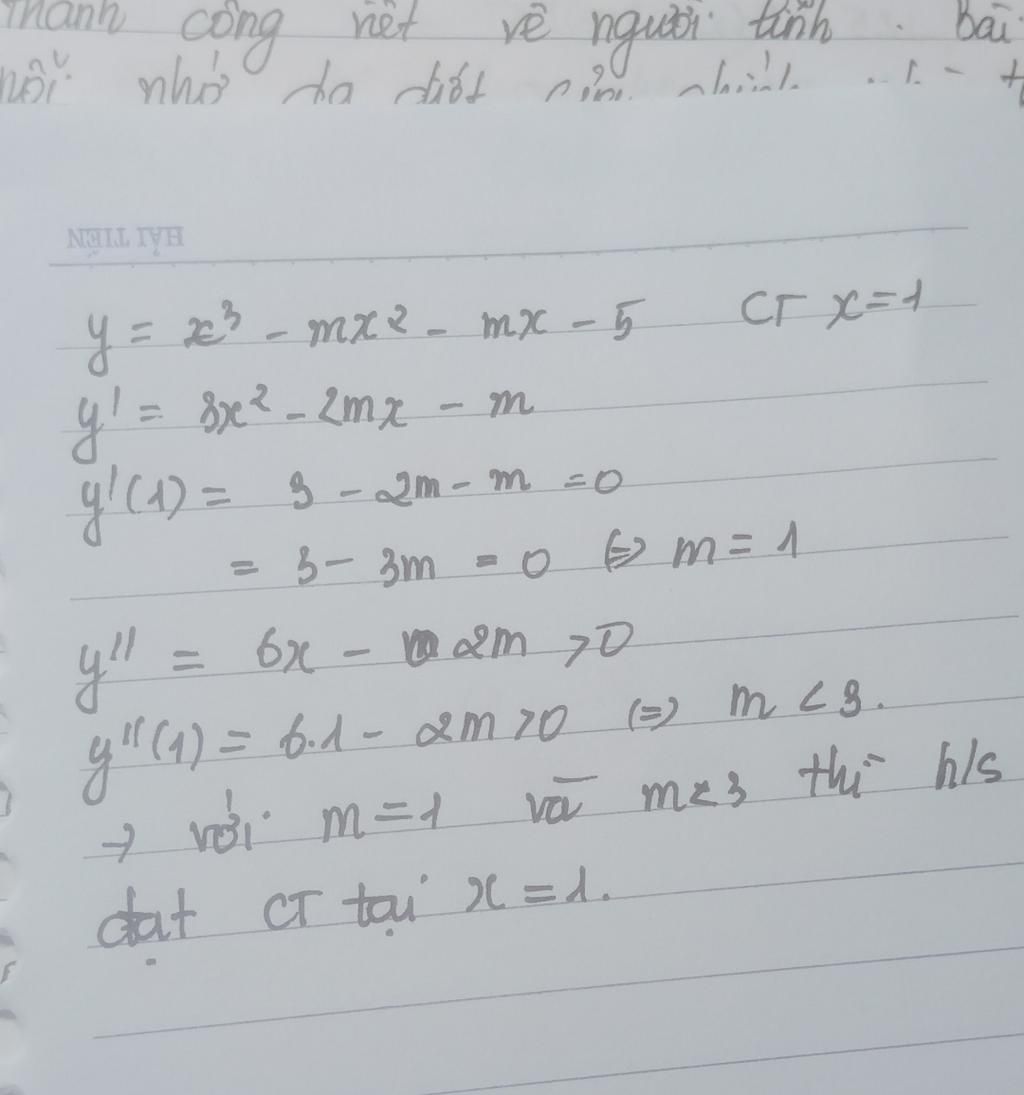 thành công nét vẽ người tình. Bài
nỗi nhớ da diết
HẢI TIẾN
y = x³ - mx² - mx - 5 CT x = 1
y' = 3x² - 2mx - m
y'(1) = 3 - 2m - m = 0
= 3 - 3m = 0 ⇔ m = 1
y'' = 6x - 2m > 0
y''(1) = 6.1 - 2m > 0 (=) m < 3.
→ với m = 1 và m < 3 thì h/s
đạt CT tại x = 1.